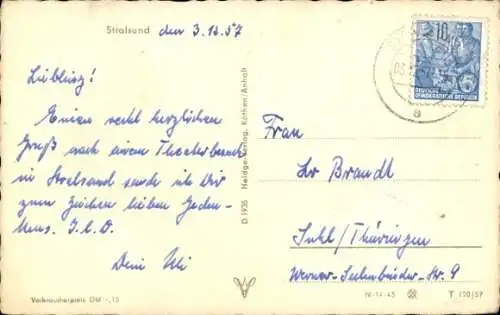 Stralsund den 3.12.57
Liebling!
Einen recht herzlichen
Gruß nach einem Theaterbesuch
in Stralsund sende ich Dir
zum Zeichen lieben Geden-
kens. I. L. D.
Dein Uli
Frau
Brandt
Suhl/Thüringen
Werner-Seelenbinder-Str. 9
D 1936 Heldge-Verlag, Köthen/Anhalt
10
DEUTSCHE
DEMOKRATISCHE REPUBLIK
a
Verbraucherpreis DM -,15
IV-14-45
T 120/57